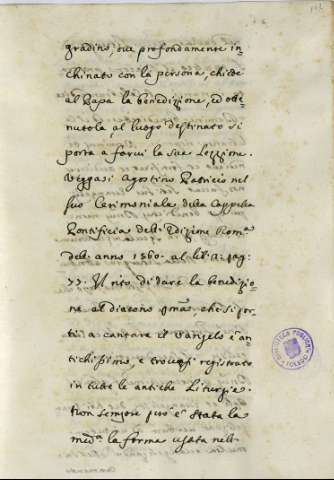 gradino, ove profondamente in
chinato con la persona, chiede
al Papa la benedizione, ed otte
nutola, al luogo destinato si
porta a farvi la sua Lezzione.
Veggasi Agostino Patricio nel
suo Cerimoniale della Cappella
Pontificia dell' Edizione Roma.
dell' anno 1560. al lib. 2. pag.
77. Il rito di dare la benedizio
ne al diacono pma. che si por
ti a cantare il Vangelo è an
tichissimo, e trovasi registrato
in tutte le antiche Liturgie.
Non sempre però è stata la
med.ma la forma usata nell'